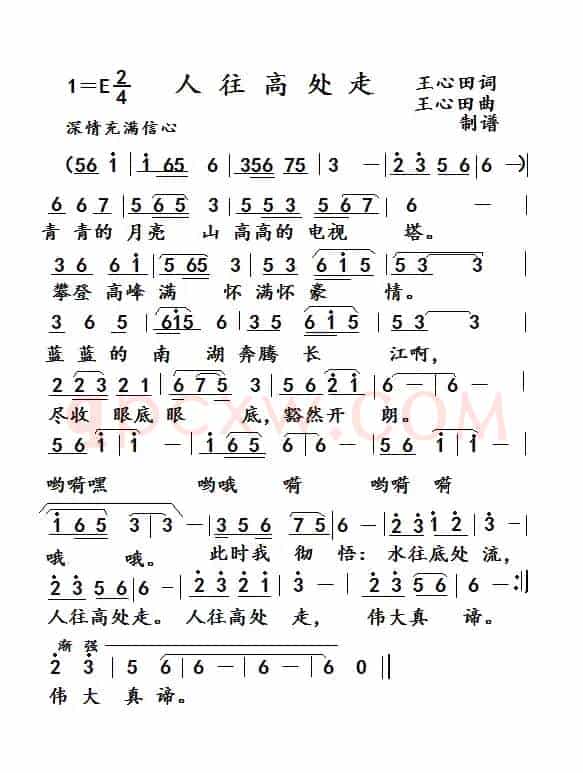 1=E 2/4 人往高处走 王心田词
王心田曲
制谱
深情充满信心
(56 1 | 165 6 | 356 75 | 3 — | 2 3 5 6 | 6 — )
6 6 7 | 5 65 3 | 5 5 3 5 37 | 6 —
青青的月亮 山高高的电视 塔。
3 6 6 1 | 5 65 3 | 5 3 6 15 | 5 3 3
攀登高峰满 怀满怀豪 情。
3 6 5 | 615 3 | 5 5 3 615 | 5 3 3
蓝蓝的南 湖奔腾长 江啊,
2 2 3 2 1 | 6 7 5 | 3 5 6 2 1 | 6 — | 6 —
尽收眼底眼 底,豁然开 朗。
5 6 1 | 1 — | 1 6 5 | 6 — | 5 6 | 6 —
哟嗬嘿 哟哦 嗬 哟嗬 嗬
1 6 5 3 | 3 — | 3 5 6 7 5 | 6 — | 2 3 1 2 3
哦 哦。 此时我 彻 悟:水往底处 流,
2 3 5 6 | 6 — | 2 3 2 1 | 3 — | 2 3 5 6 | 6 — :||
人往高处走。人往高处 走, 伟大真 谛。
渐 强
2 3 | 5 6 | 6 — | 6 — | 6 0 ||
伟大真谛。
qpcxw.COM